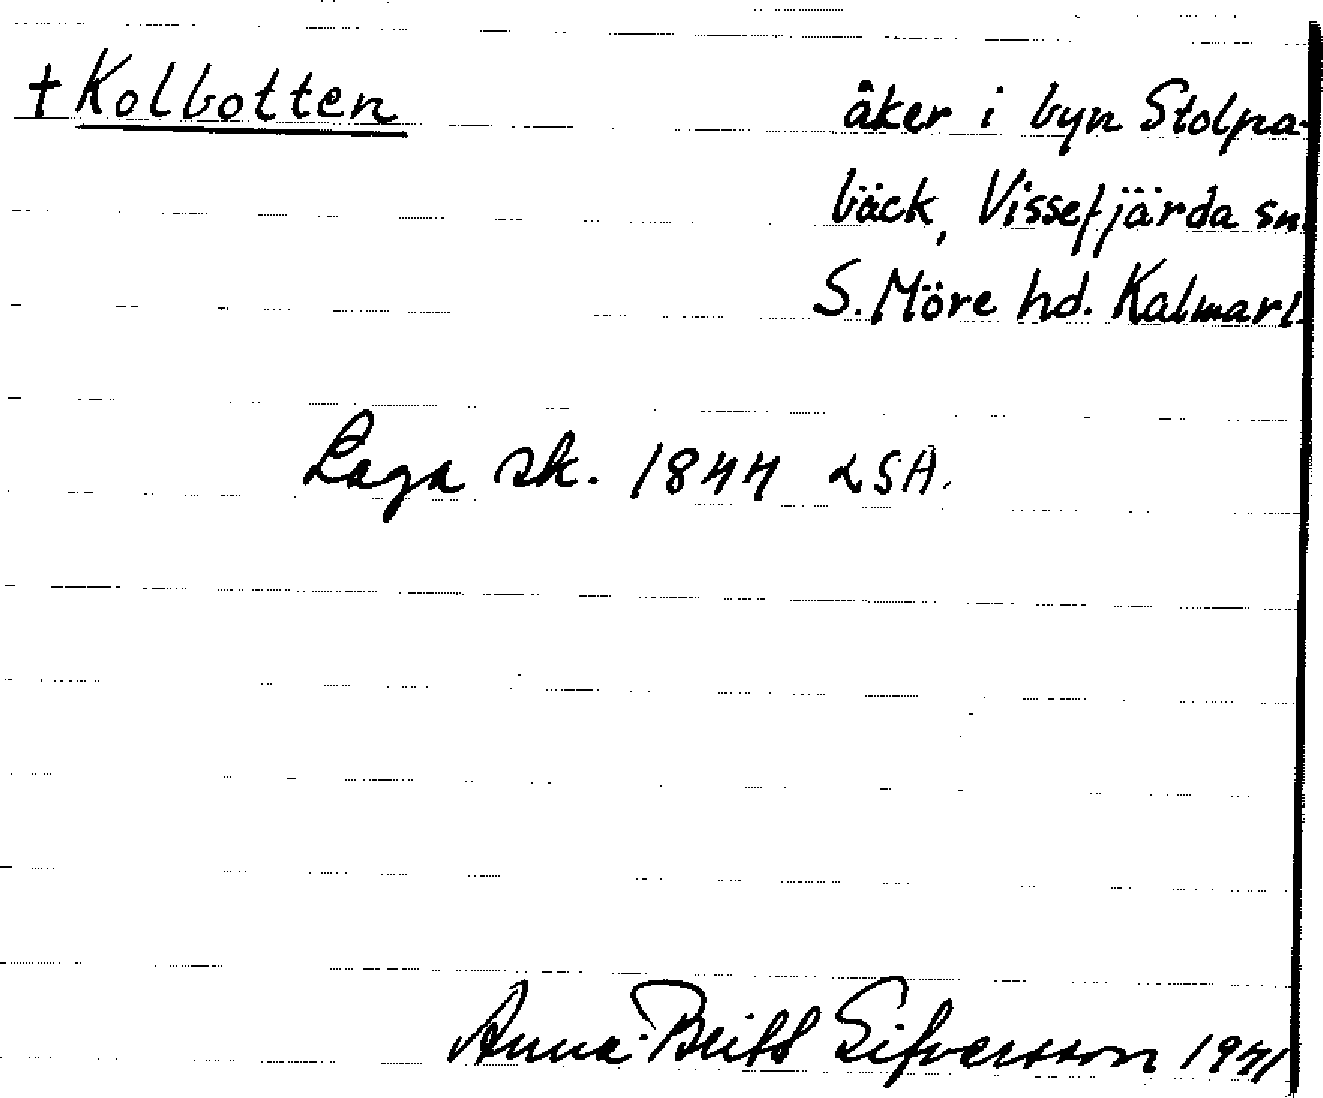 † Kolbotten
åker i byn Stolpa-
bäck, Vissefjärda sn.
S. Möre hd. Kalmarl.
Laga sk. 1844 LSA.
Anna-Britt Sifversson 1941